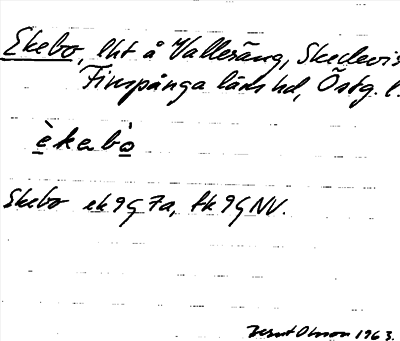 Ekebo, lht å Vallesäng, Skedevis
Finspånga läns hd, Östg. l.
èkabò
Ekebo ek 9G 7a, tk 9G NV.
1963.